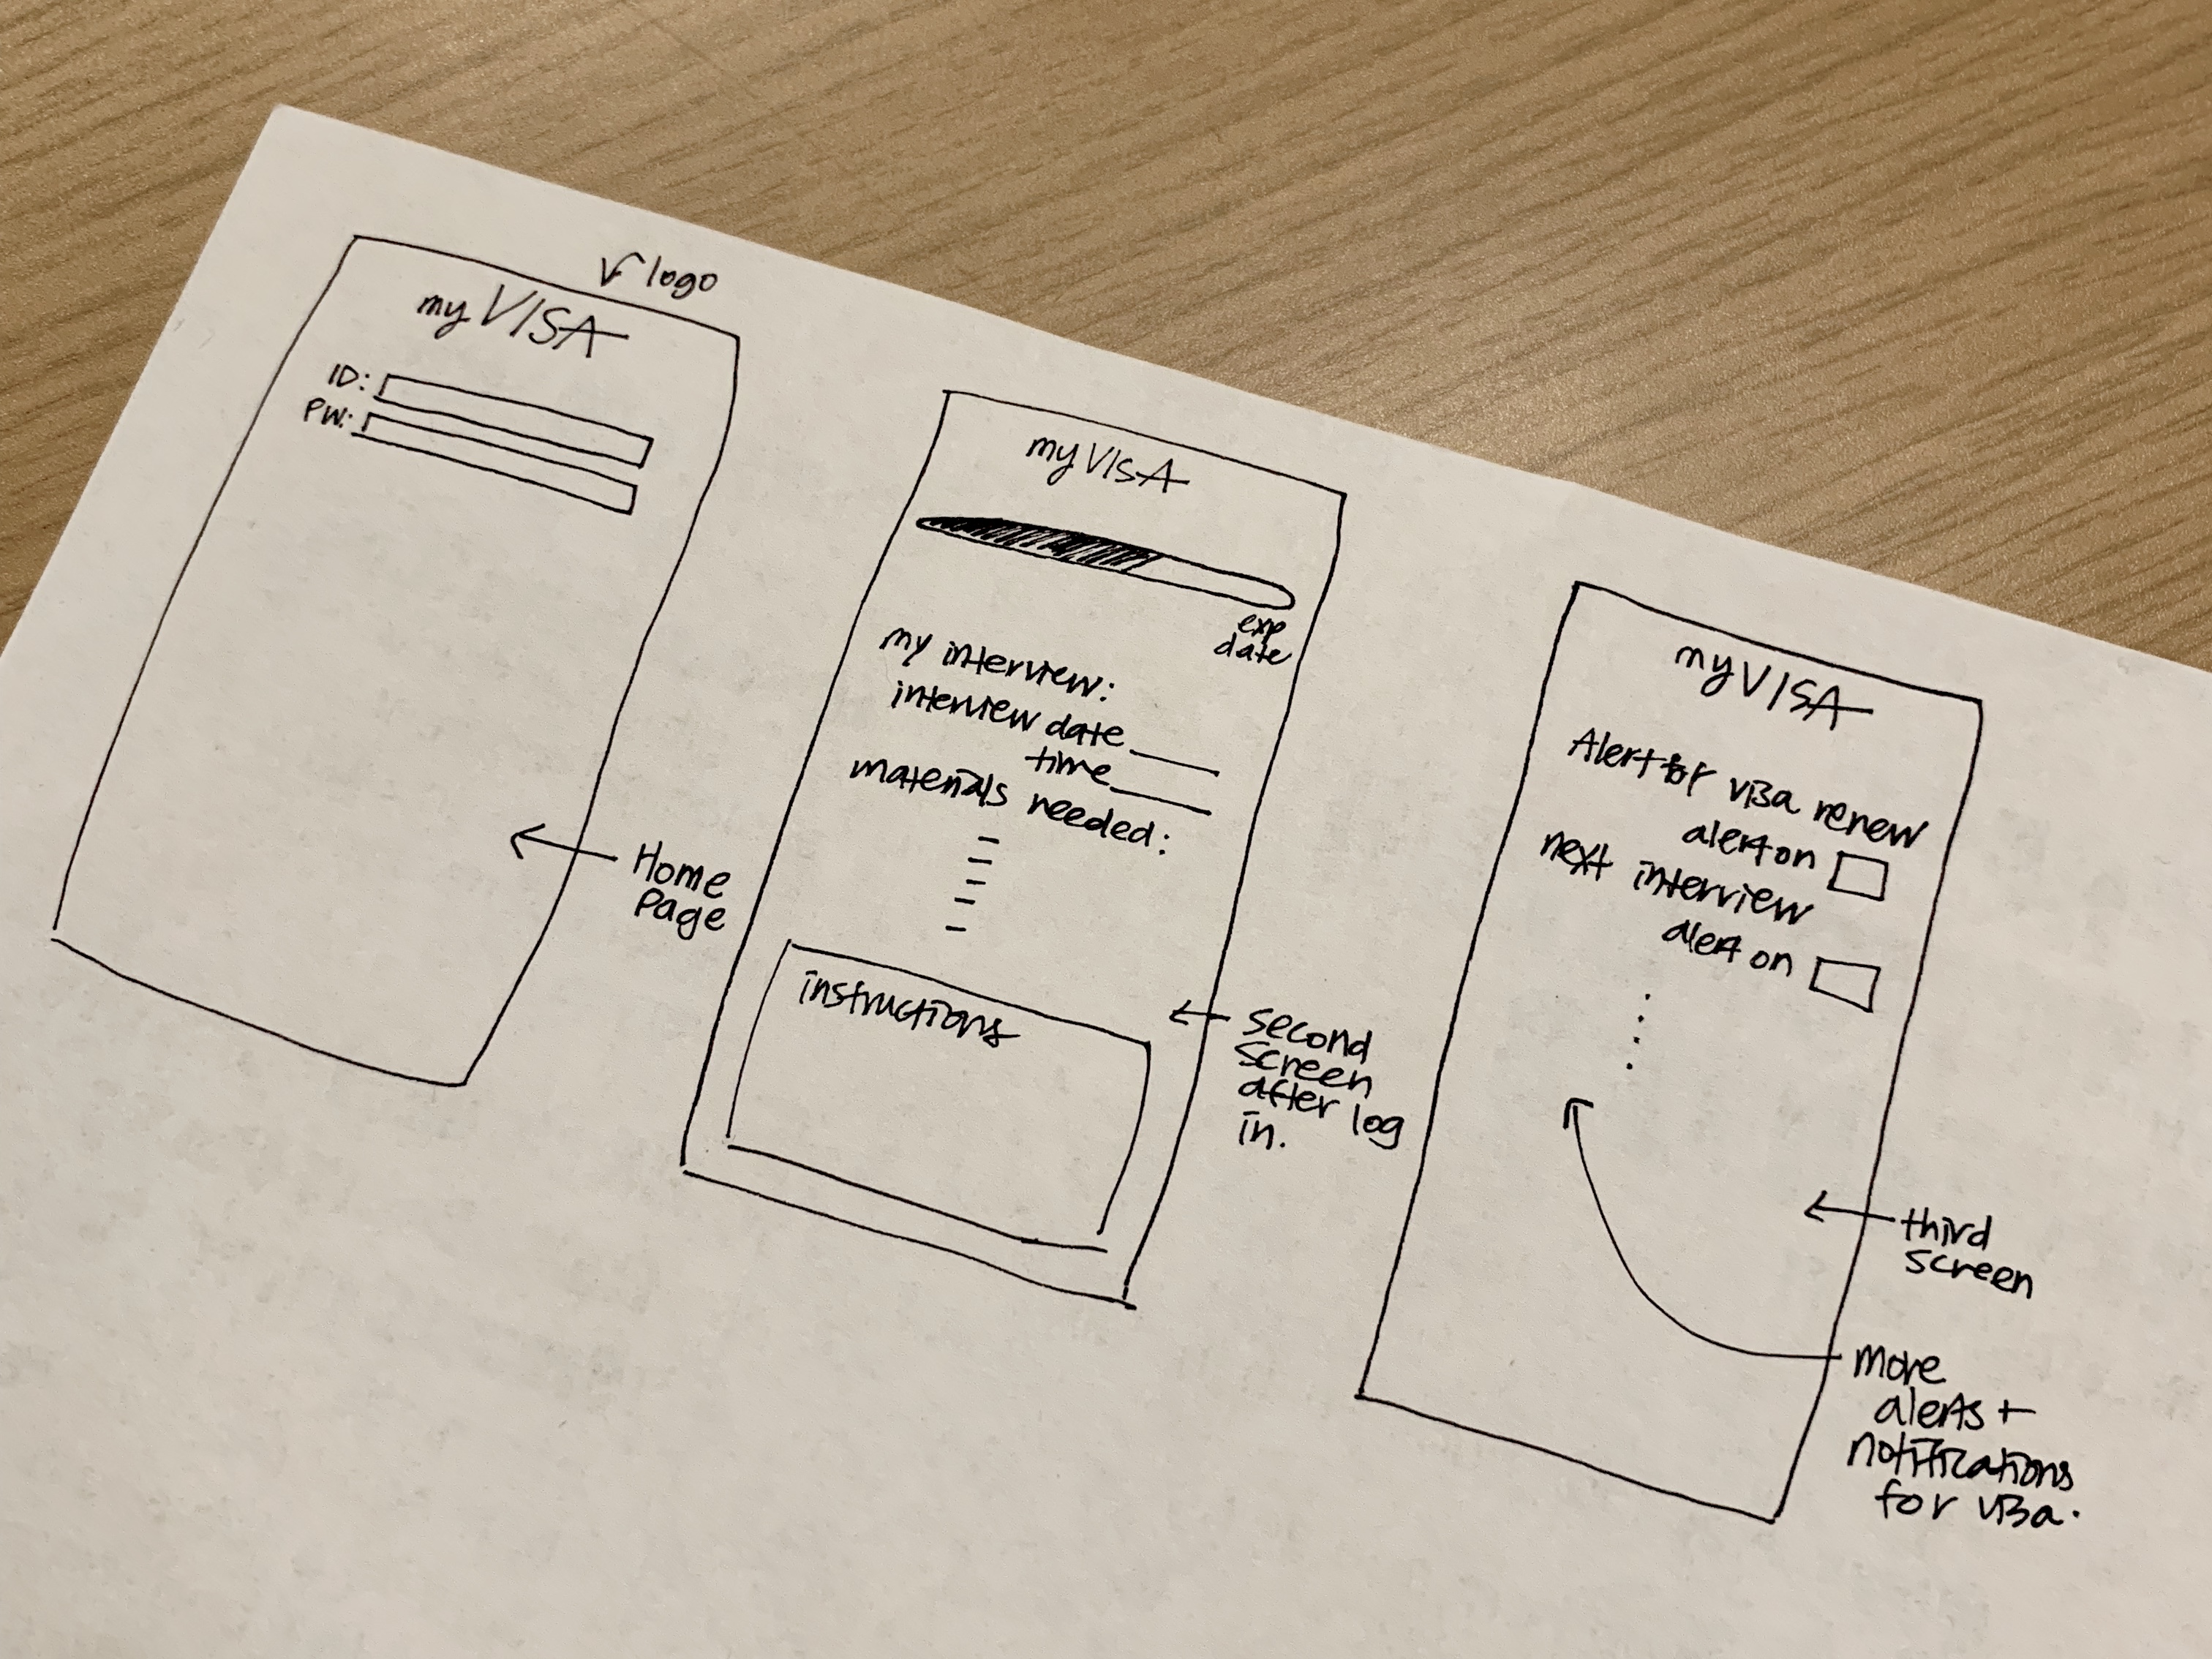 logo
my VISA
ID:
PW:
Home
Page
my VISA
exp
date
my interview:
interview date
time
materials needed:
instructions
second
screen
after log
in.
my VISA
Alert for visa renew
alert on
next interview
alert on
third
screen
more
alerts +
notifications
for visa.